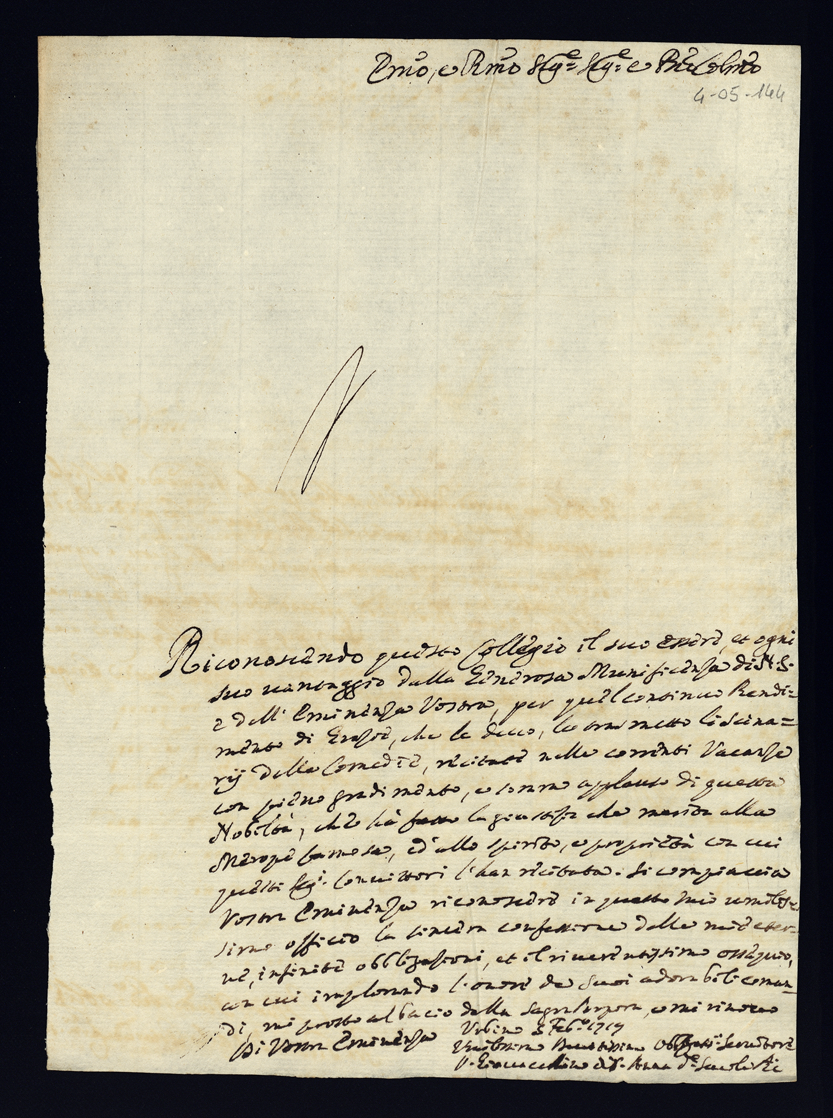 Emo, e Rmo Sig:e Sig:e e Prõe Colmo
4-05-144
Riconoscendo questo Collegio il suo essere, et ogni
suo vantaggio dalla Generosa Munificenza di N. S.
e dell' Eminenza Vostra, per quel continuo Rendi=
mento di Grazie, che le devo, le trasmetto li Scena=
rij delle Comedie, recitate nelle correnti Vacanze
con pieno gradimento, e sommo applauso di questa
Nobiltà, che hà fatto la giustizia che merita alla
Merope famosa, ed allo spirito, e proprietà con cui
questi Sig.i Convittori l'han recitata. Si compiaccia
Vostra Eminenza riconoscere in questo mio umilis=
simo officio la sincera confessione delle mie eter=
ne, infinite obbligazioni, et il riverentissimo ossequio,
con cui implorando l'onore de suoi adorabili coman=
di, mi prostro al bacio della Sagra Porpora, e mi rinovo
Di Vostra Eminenza
Urbino 8 Feb.o 1717
Umilissimo Devotissimo Obbligatis.o Servitore
Giovacchino di S. Anna d.e Scuole Pie